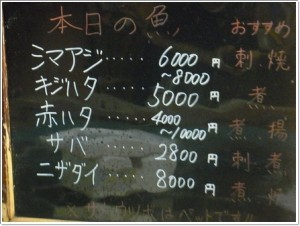 本日の魚 おすすめ
シマアジ‥‥‥ 6000円 刺 焼
～8000
キジハタ‥‥‥ 5000円 煮
赤ハタ‥‥‥ 4000 煮 揚
～10000円
サバ‥‥‥ 2800円 刺 煮
ニザダイ‥‥‥ 8000円 煮 焼
はペットです!!